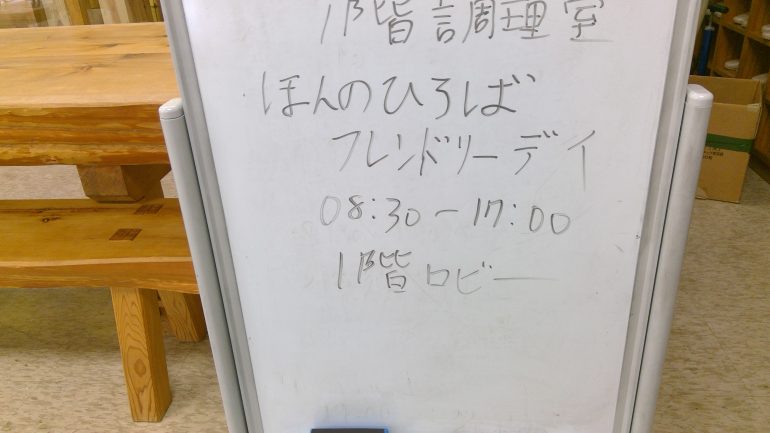 1階調理室
ほんのひろば
フレンドリーデイ
08:30-17:00
1階ロビー